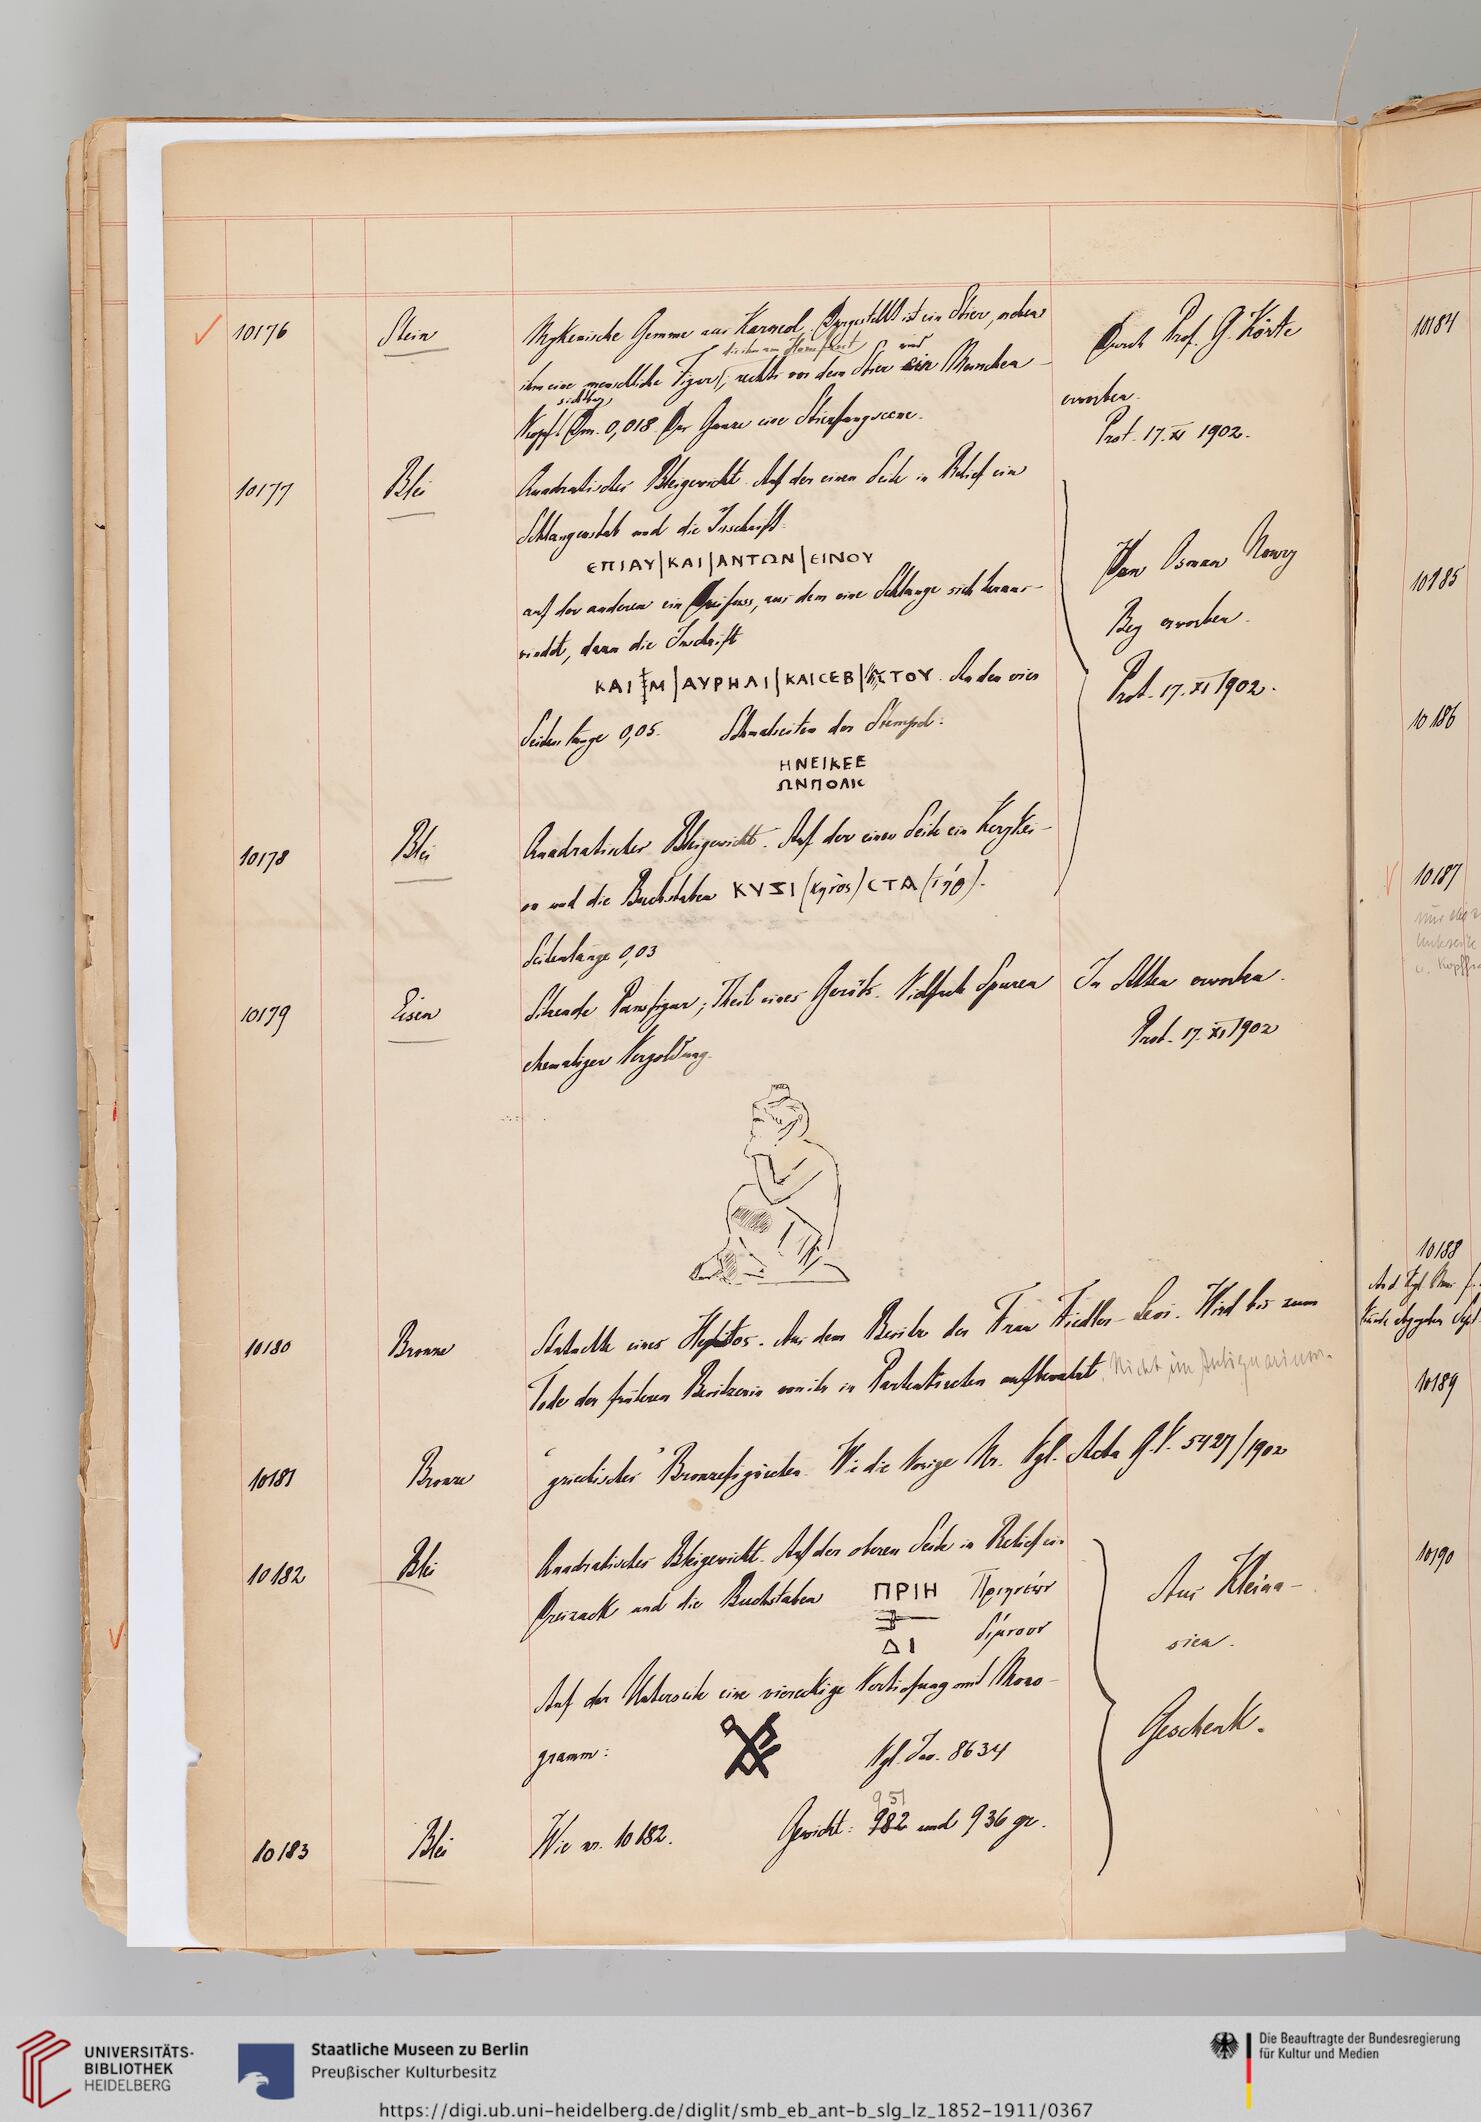 10176 Stein Mykenische Gemme aus Karneol. Dargestellt ist ein Stier, neben Durch Prof. G. Körte
die ihn am Horn fasst und
ihm eine menschliche Figur, rechts vor dem Stier ein Menschen- erworben.
sichtbar,
Kopf. Dm. 0,018 Das Ganze eine Stierfangscene. Prot. 17. XI 1902.
10177 Blei Quadratisches Bleigewicht. Auf der einen Seite in Relief ein
Schlangenstab und die Inschrift:
ЄΠΙΑΥ|ΚΑΙ|ΑΝΤΩΝ|ЄΙΝΟΥ Von Osman Noury
auf der anderen ein Dreifuss, aus dem eine Schlange sich heraus- Bey erworben.
windet, darum die Inschrift
ΚΑΙ Μ|ΑΥΡΗΛΙ|ΚΑΙCΕΒ| CΤΟΥ. An den vier Prot. 17. XI 1902.
Seitenlänge 0,05. Schmalseiten der Stempel:
ΗΝΕΙΚΕΕ
ΩΝΠΟΛΙC
10178 Blei Quadratisches Bleigewicht. Auf der einen Seite ein Kerykei-
on und die Buchstaben ΚΥΖΙ CΤΑ
Seitenlänge 0,03
10179 Eisen Sitzende Pansfigur; Theil eines Geräts. Vielfach Spuren In Athen erworben.
ehemaliger Vergoldung. Prot. 17. XI 1902
10180 Bronze Statuette eines Hephaistos. Aus dem Besitze der Frau Fiedler-Levi. Wird bis zum
Tode der früheren Besitzerin von ihr in Partenkirchen aufbewahrt. Nicht im Antiquarium.
10181 Bronze "griechisches" Bronzefigürchen. Wie die vorige Nr. Vgl. Acta 5427/1902
10182 Blei Quadratisches Bleigewicht. Auf der oberen Seite in Relief ein Aus Kleina-
Dreizack und die Buchstaben ΠΡΙΗ Πριηνέων
ΔΙ δίμνουν sien.
Auf der Unterseite eine viereckige Vertiefung und Mono- Geschenk.
gramm: Vgl. Inv. 8634
951
10183 Blei Wie nr. 10182. Gewicht: 982 und 936 gr.
10184
10185
10186
10187
10188
10189
10190
UNIVERSITÄTS-
BIBLIOTHEK
HEIDELBERG
Staatliche Museen zu Berlin
Preußischer Kulturbesitz
Die Beauftragte der Bundesregierung
für Kultur und Medien
https://digi.ub.uni-heidelberg.de/diglit/smb_eb_ant-b_slg_lz_1852-1911/0367